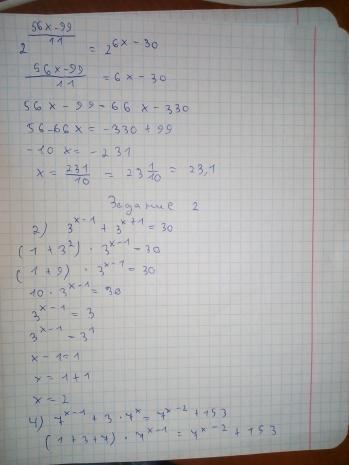 2^(56x-99)/11 = 2^6x-30
(56x-99)/11 = 6x-30
56x-99=66x-330
56-66x=-330+99
-10x=-231
x=231/10 = 23 1/10 = 23,1
Задание 2
2) 3^x-1 + 3^x+1 = 30
(1+3²)·3^x-1=30
(1+9)·3^x-1=30
10·3^x-1=30
3^x-1=3
3^x-1=3¹
x-1=1
x=1+1
x=2
4) 4^x-1+3·4^x=4^x-2+153
(1+3+4)·4^x-1=4^x-2+153